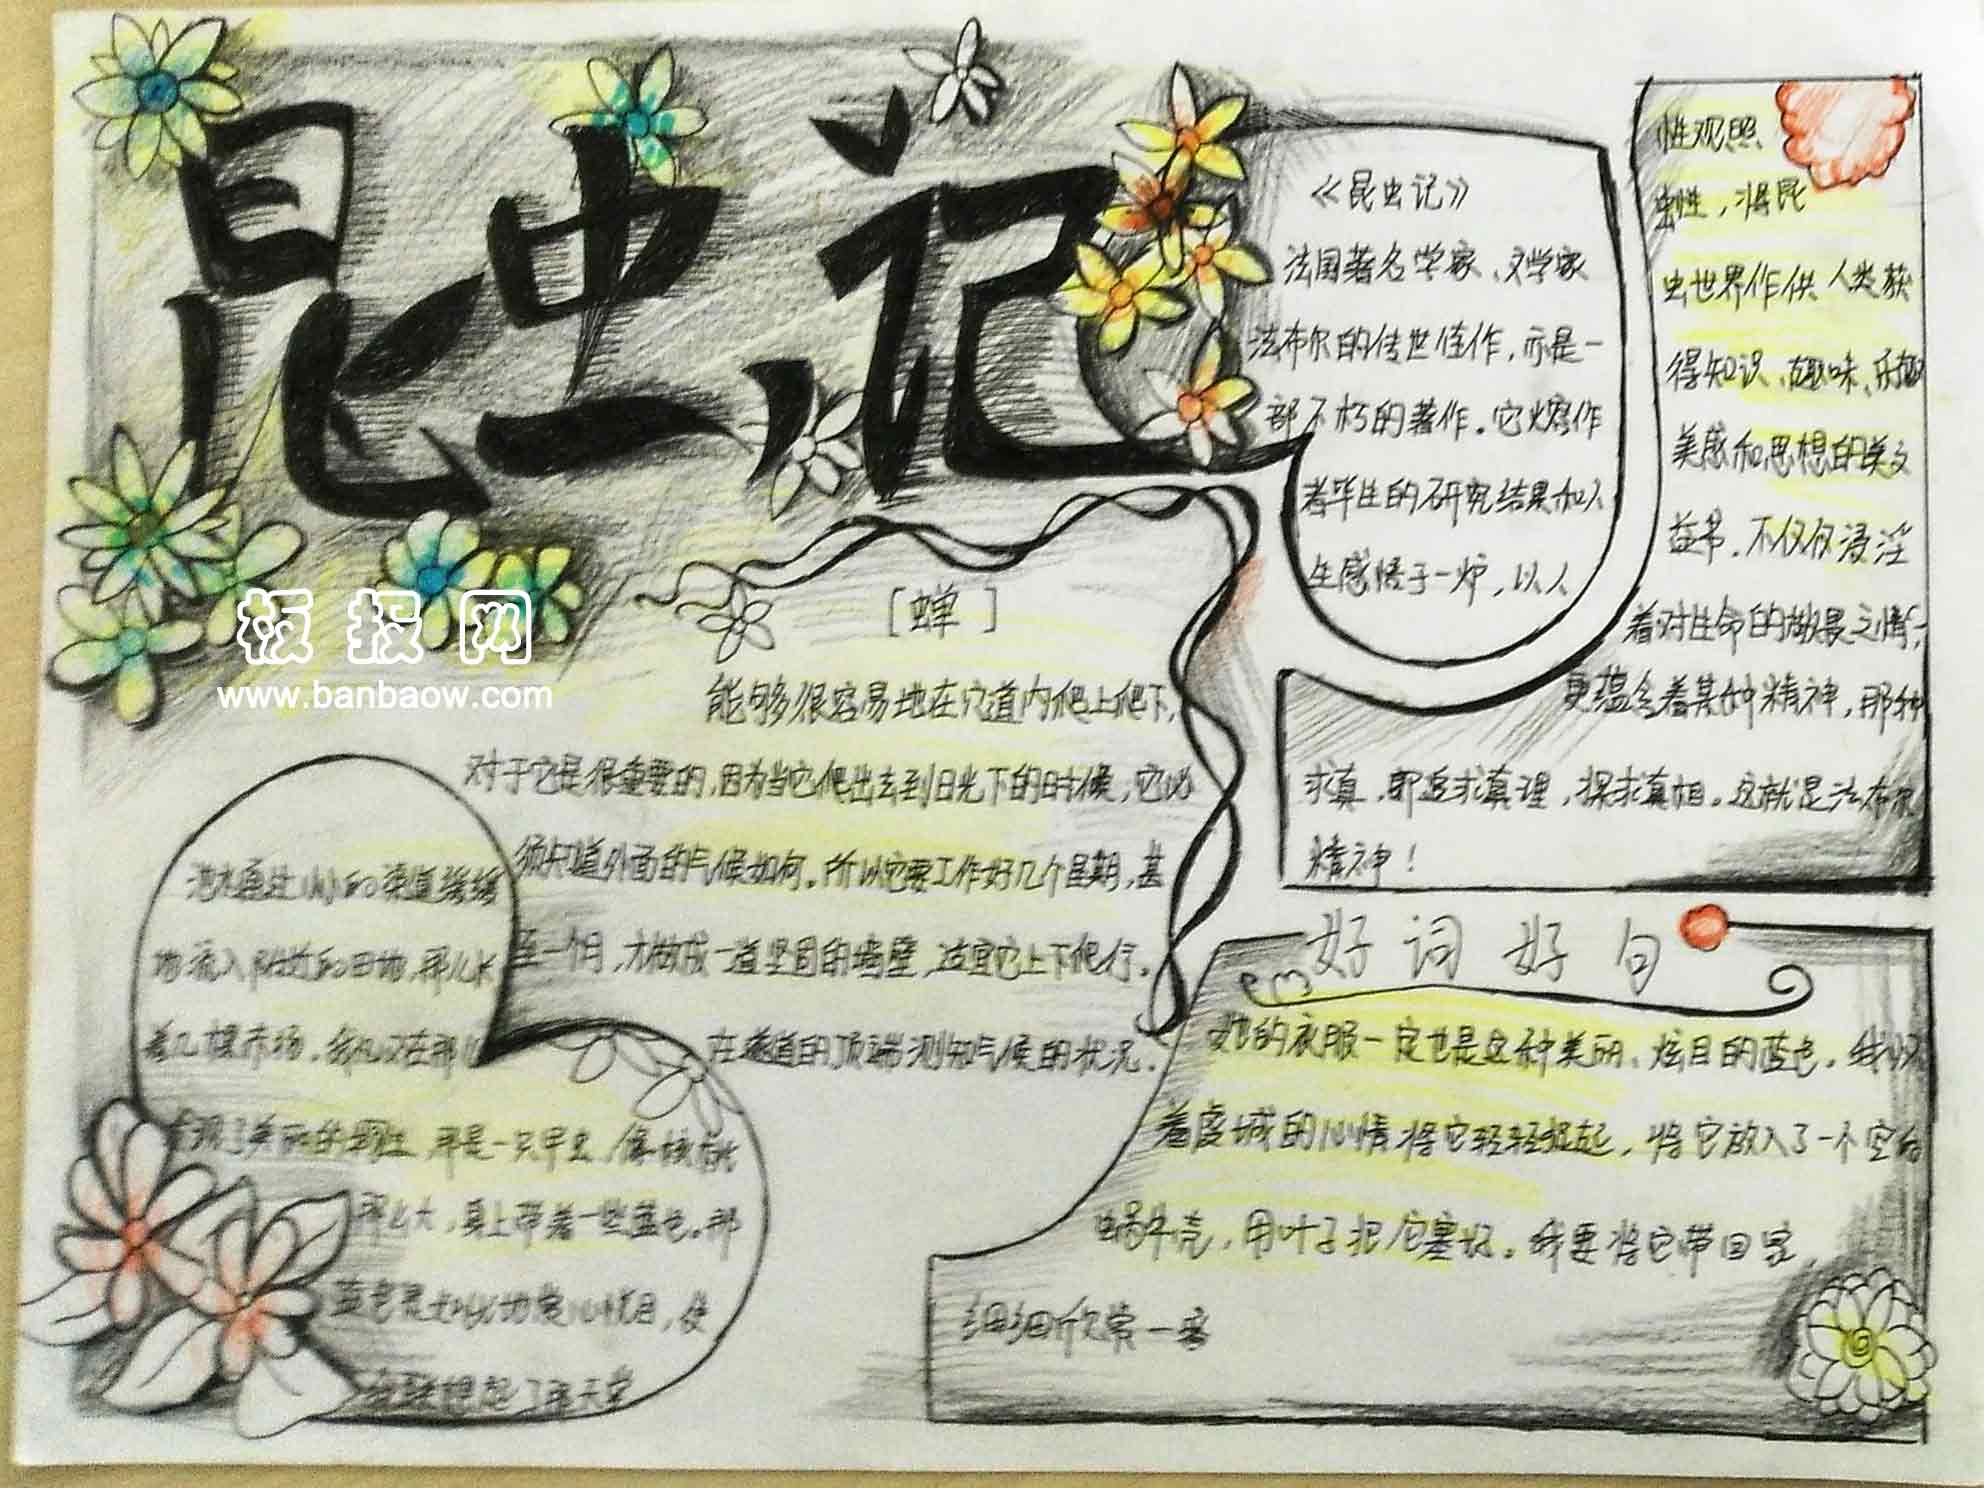 昆虫记
《昆虫记》
法国著名学家、文学家
法布尔的传世佳作，亦是一
部不朽的著作。它熔作
者毕生的研究结果和人
生感悟于一炉，以人
性观照
虫性，将昆
虫世界作供人类获
得知识、趣味、乐趣
美感和思想的美文
益书，不仅仅浸淫
着对生命的敬畏之情，
更蕴含着某种精神，那种
求真，即追求真理，探求真相。这就是法布尔
精神！
[蝉]
能够很容易地在穴道内爬上爬下，
对于它是很重要的，因为当它爬出去到日光下的时候，它必
须知道外面的气候如何。所以它要工作好几个星期，甚
至一个月，才做成一道坚固的墙壁，适宜它上下爬行。
在隧道的顶端 测知气候的状况。
板报网
www.banbaow.com
通过小小的渠道缓缓
地流入附近的田地，那儿长
着几棵，我又在那儿
美丽的 那是一只甲虫，像核桃
那么大，身上带着一些蓝色。那
蓝色是如此的赏心悦目，使
想起了 天堂
好词好句
她的衣服一定也是这种美丽、炫目的蓝色。我怀
着虔诚的心情将它轻轻捉起，将它放入了一个空的
蜗牛壳，用叶子把它塞好。我要将它带回家，
细细欣赏一番